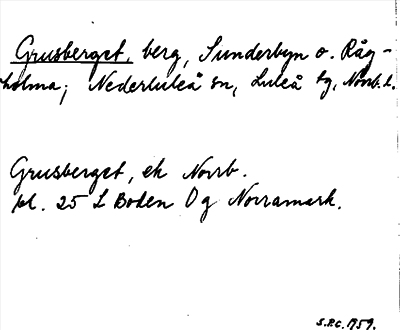 Grusberget, berg, Sunderbyn o. Råg-
holma; Nederluleå sn, Luleå tg, Norrb. l.
Grusberget, ek Norrb.
bl. 25 L Boden Og Norramark.
S.P.C. 1959.